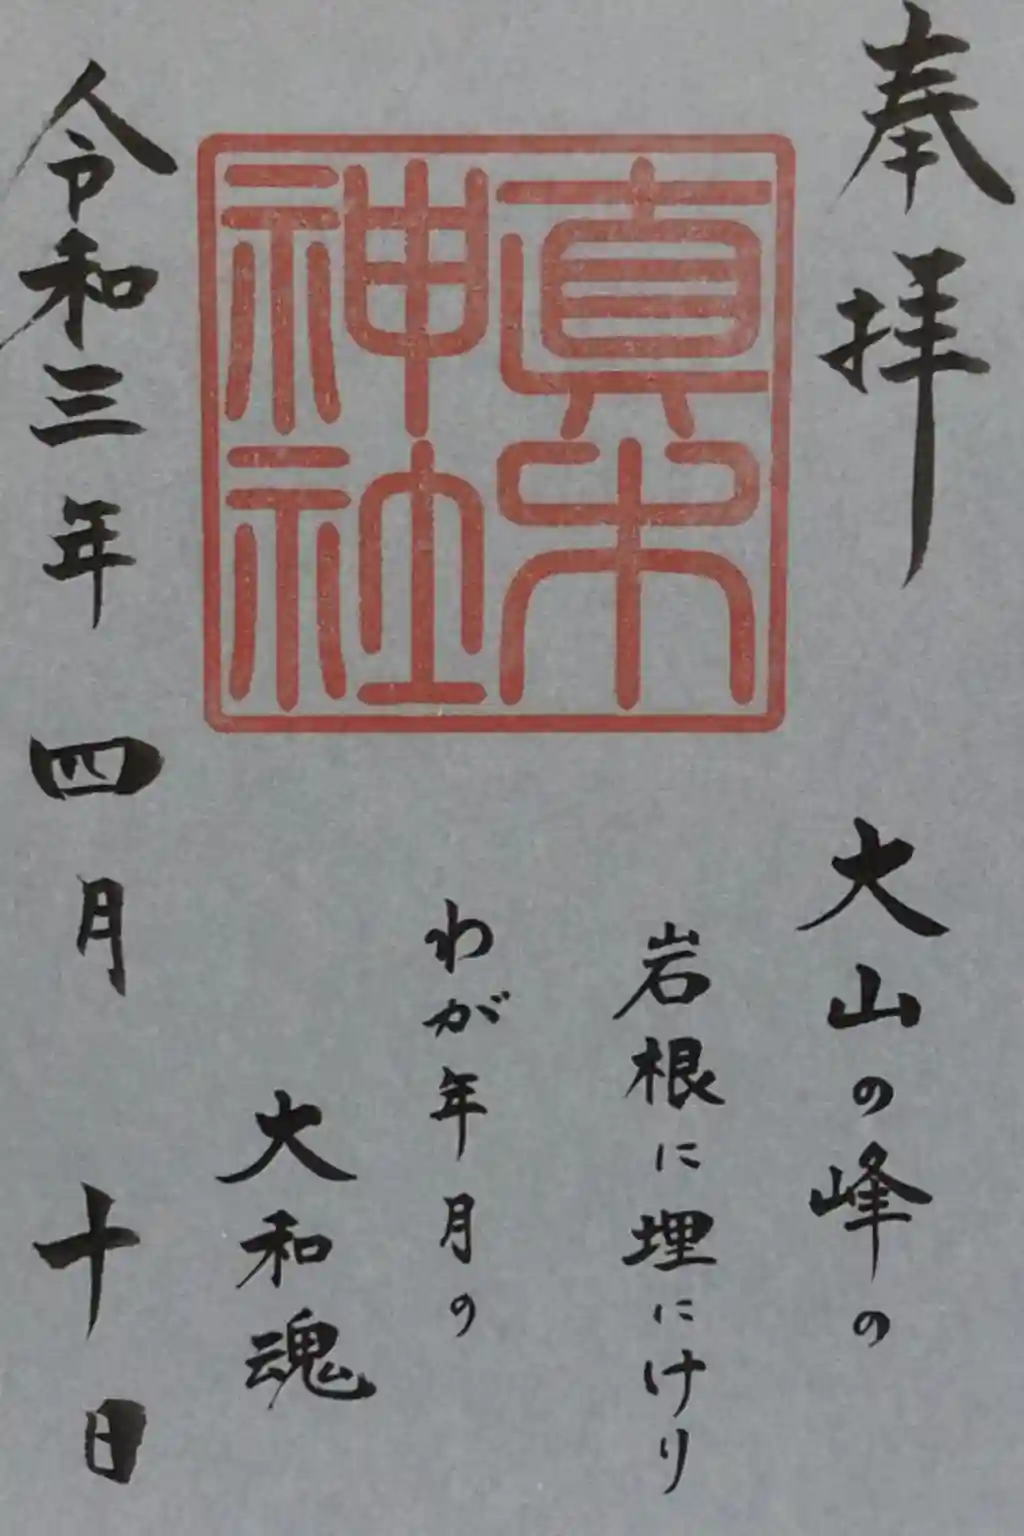 奉拝
眞木
神社
大山の峰の
岩根に埋にけり
わが年月の
大和魂
令和三年 四月 十日